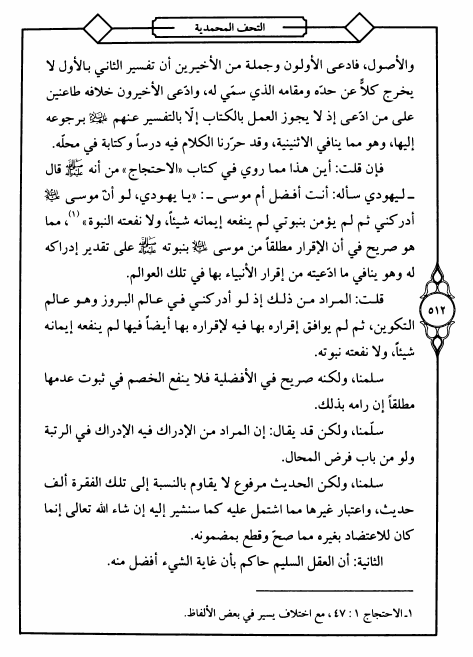 التحف المحمدية
والأصول، فادعى الأولون وجملة من الأخيرين أن تفسير الثاني بالأول لا
يخرج كلاًّ عن حدّه ومقامه الذي سمّي له، وادّعى الأخيرون خلافه طاعنين
على من ادّعى إذ لا يجوز العمل بالكتاب إلّا بالتفسير عنهم برجوعه
إليها، وهو مما ينافي الاثنينية، وقد حرّرنا الكلام فيه درساً وكتابة في محلّه.
فإن قلت: أين هذا مما روي في كتاب «الاحتجاج» من أنه ﷺ قال
ـ ليهودي سأله: أنت أفضل أم موسى ـ: «يا يهودي، لو أنّ موسى
أدركني ثم لم يؤمن بنبوتي لم ينفعه إيمانه شيئاً، ولا نفعته النبوة»(١)، مما
هو صريح في أن الإقرار مطلقاً من موسى بنبوته ﷺ على تقدير إدراكه
له وهو ينافي ما ادّعيته من إقرار الأنبياء بها في تلك العوالم.
قلت: المراد من ذلك إذ لو أدركني في عالم البروز وهو عالم
التكوين، ثم لم يوافق إقراره بها فيه لإقراره بها أيضاً فيها لم ينفعه إيمانه
شيئاً، ولا نفعته نبوته.
سلمنا، ولكنه صريح في الأفضلية فلا ينفع الخصم في ثبوت عدمها
مطلقاً إن رامه بذلك.
سلّمنا، ولكن قد يقال: إن المراد من الإدراك فيه الإدراك في الرتبة
ولو من باب فرض المحال.
سلمنا، ولكن الحديث مرفوع لا يقاوم بالنسبة إلى تلك الفقرة ألف
حديث، واعتبار غيرها مما اشتمل عليه كما سنشير إليه إن شاء الله تعالى إنما
كان للاعتضاد بغيره مما صحّ وقطع بمضمونه.
الثانية: أن العقل السليم حاكم بأن غاية الشيء أفضل منه.
١ـ الاحتجاج ١ : ٤٧، مع اختلاف يسير في بعض الألفاظ.
٥١٢